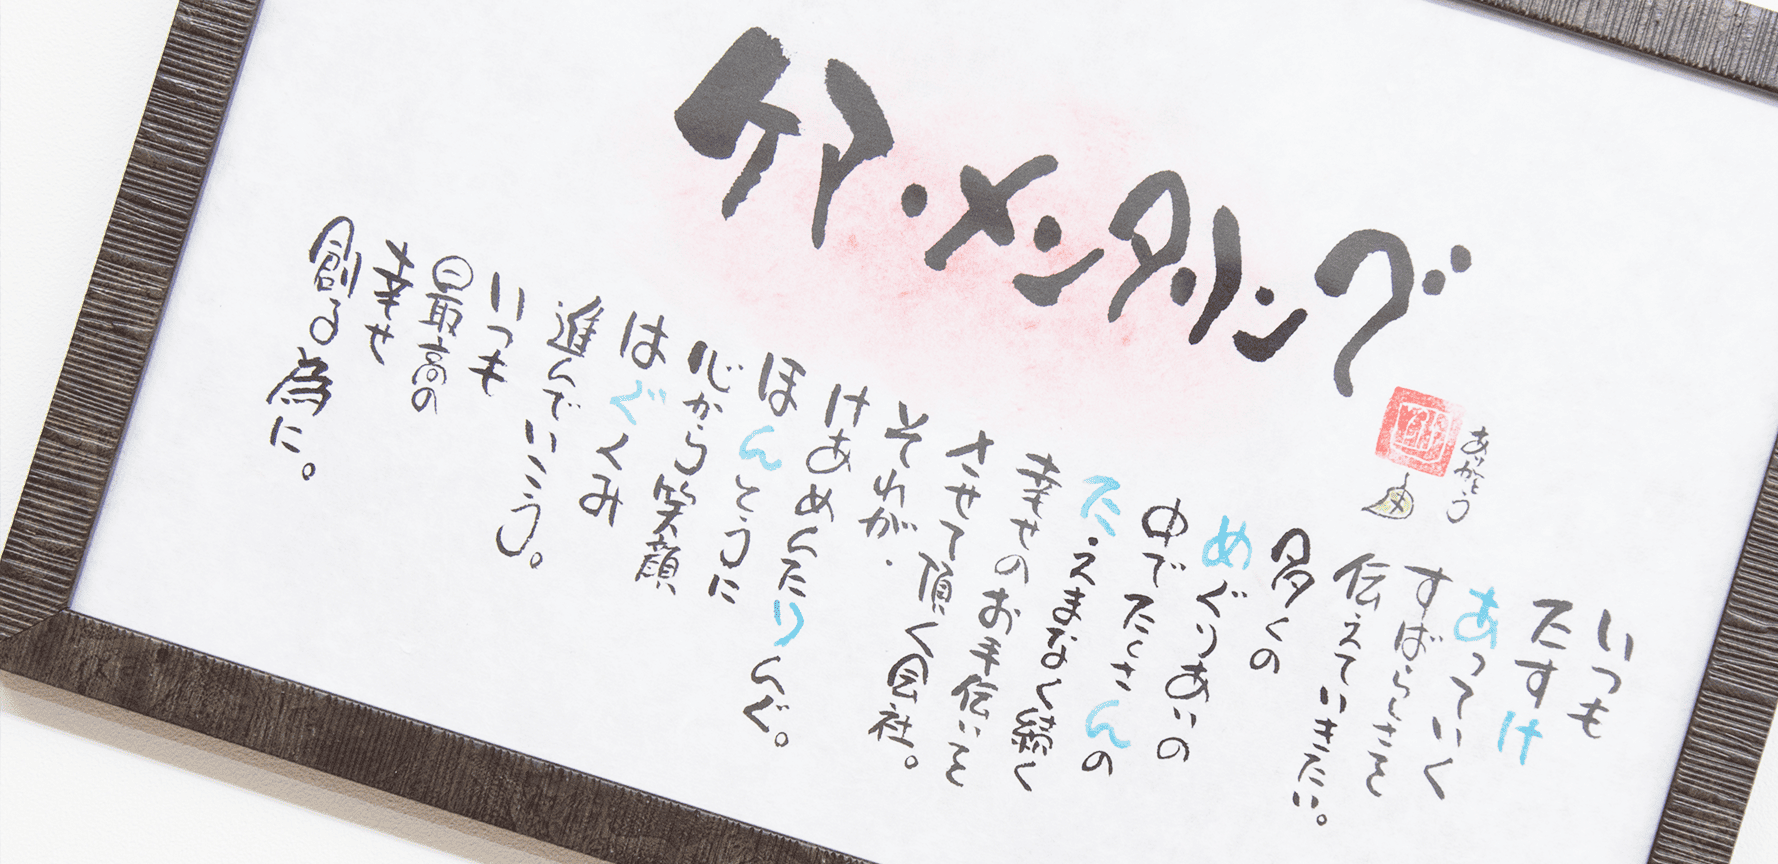 ケア・メンタリング
ありがとう
いつも
たすけ
あっていく
すばらしさを
伝えていきたい。
多くの
めぐりあいの
中でたくさんの
たえまなく続く
幸せのお手伝いを
させて頂く会社。
それが、
けあめんたりんぐ。
ほんとうに
心から笑顔
はぐくみ
進んでいこう。
いつも
最高の
幸せ
創る為に。